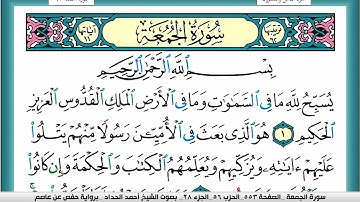 سُورَةُ الْجُمُعَةِ
بِسْمِ اللَّهِ الرَّحْمَٰنِ الرَّحِيمِ
يُسَبِّحُ لِلَّهِ مَا فِي السَّمَٰوَٰتِ وَمَا فِي الْأَرْضِ الْمَلِكِ الْقُدُّوسِ الْعَزِيزِ
الْحَكِيمِ ١ هُوَ الَّذِي بَعَثَ فِي الْأُمِّيِّـۧنَ رَسُولًا مِّنْهُمْ يَتْلُوا۟
عَلَيْهِمْ ءَايَٰتِهِۦ وَيُزَكِّيهِمْ وَيُعَلِّمُهُمُ الْكِتَٰبَ وَالْحِكْمَةَ وَإِن كَانُوا۟
سورة الجمعة _ الصفحة ٥٥٣ _ الحزب ٥٦ _ الجزء ٢٨ _ بصوت الشيخ أحمد الحداد _ برواية حفص عن عاصم